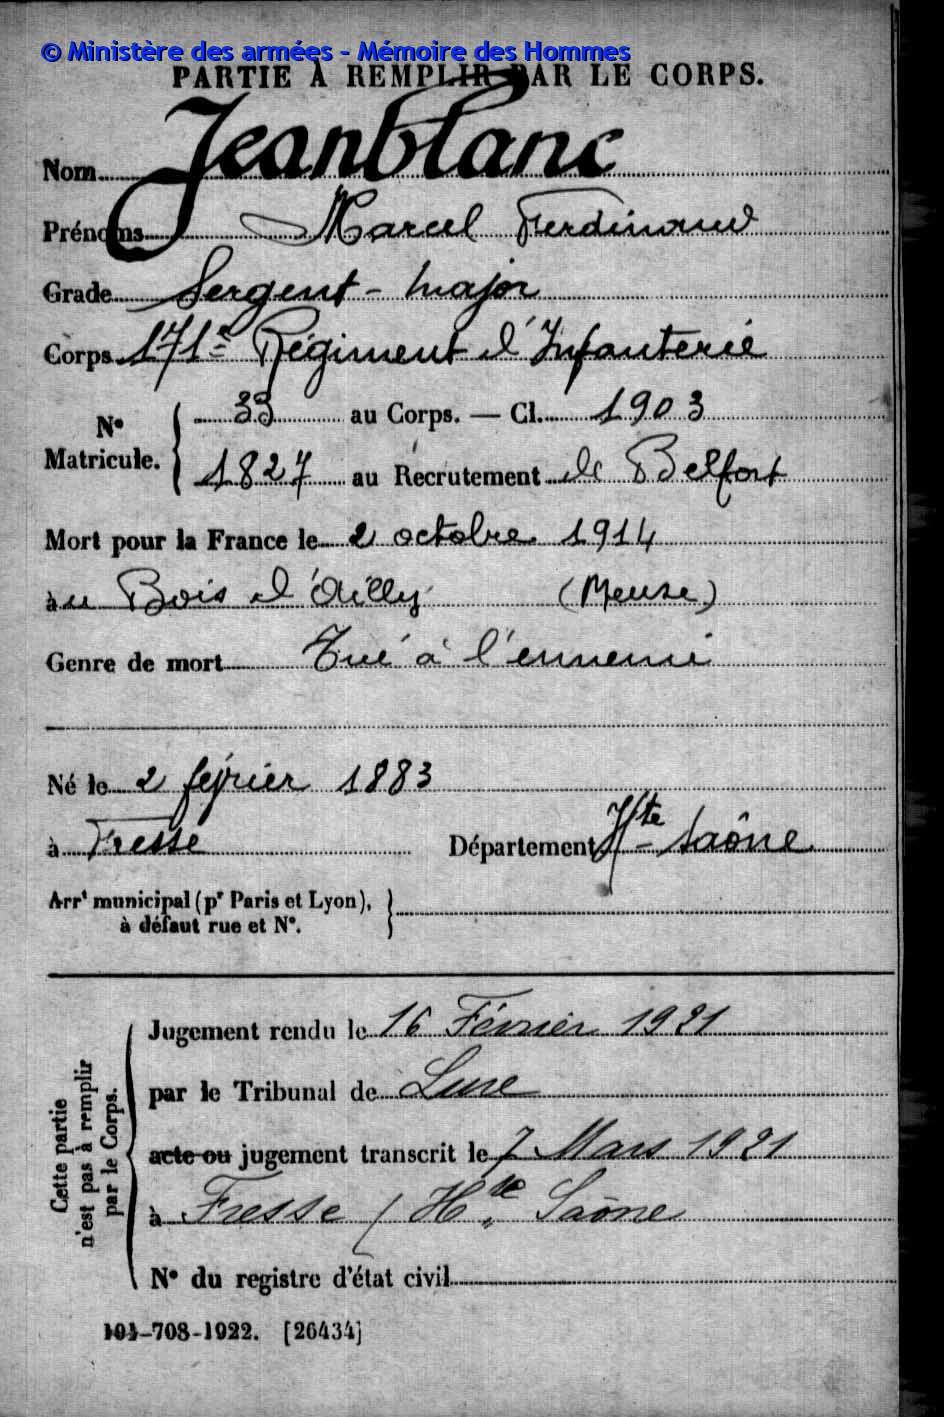 © Ministère des armées - Mémoire des Hommes
PARTIE À REMPLIR PAR LE CORPS.
Nom Jeanblanc
Prénoms Marcel Ferdinand
Grade Sergent-major
Corps 171e Régiment d'Infanterie
N° Matricule. { 33 au Corps. — Cl. 1903
1827 au Recrutement de Belfort
Mort pour la France le 2 octobre 1914
àu Bois d'Ailly (Meuse)
Genre de mort Tué à l'ennemi
Né le 2 février 1883
à Fresse Département Hte-Saône
Arrt municipal (pr Paris et Lyon),
à défaut rue et N°.
Cette partie n'est pas à remplir par le Corps.
Jugement rendu le 16 Février 1921
par le Tribunal de Lure
acte ou jugement transcrit le 7 Mars 1921
à Fresse (Hte Saône
N° du registre d'état civil
101-708-1922. [26434]